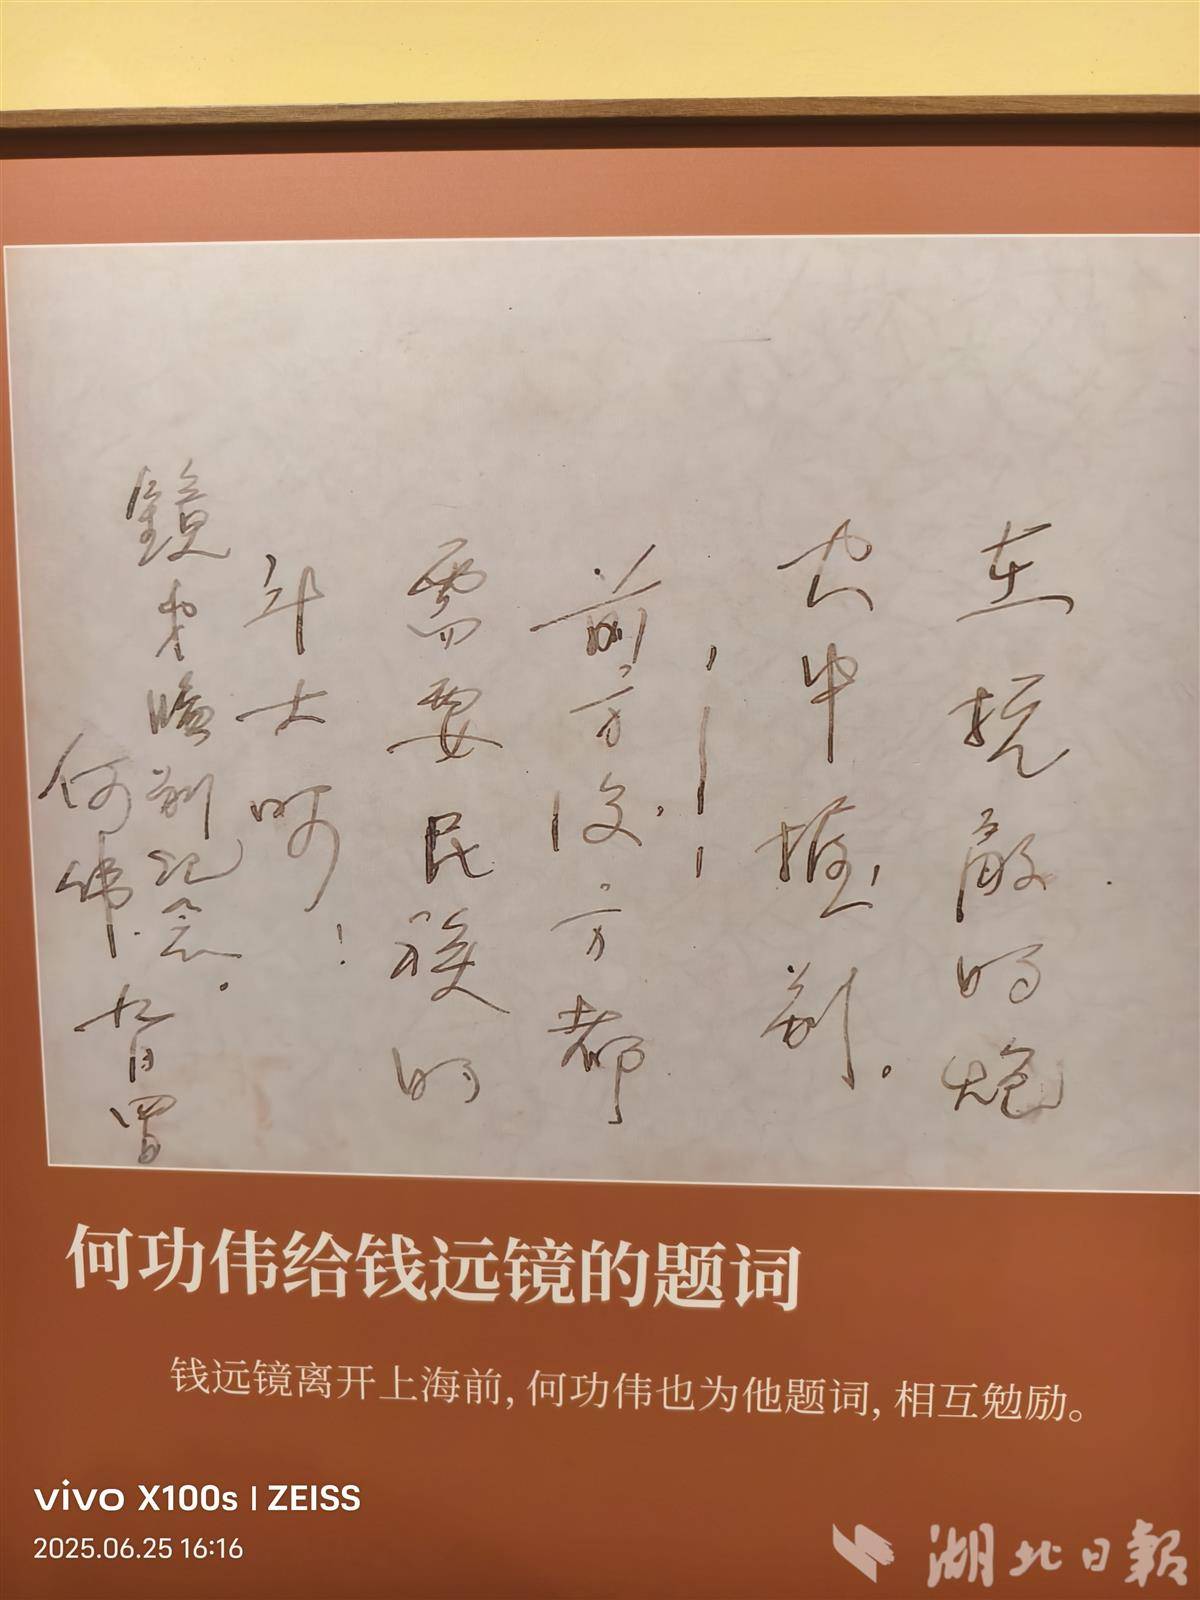 在抗敵的炮
火中握别。
——
前方後方都
需要民族的
斗士呵！
鏡弟臨别記念。
何偉.九月四日
何功伟给钱远镜的题词
钱远镜离开上海前，何功伟也为他题词，相互勉励。
vivo X100s | ZEISS
2025.06.25 16:16
湖北日報